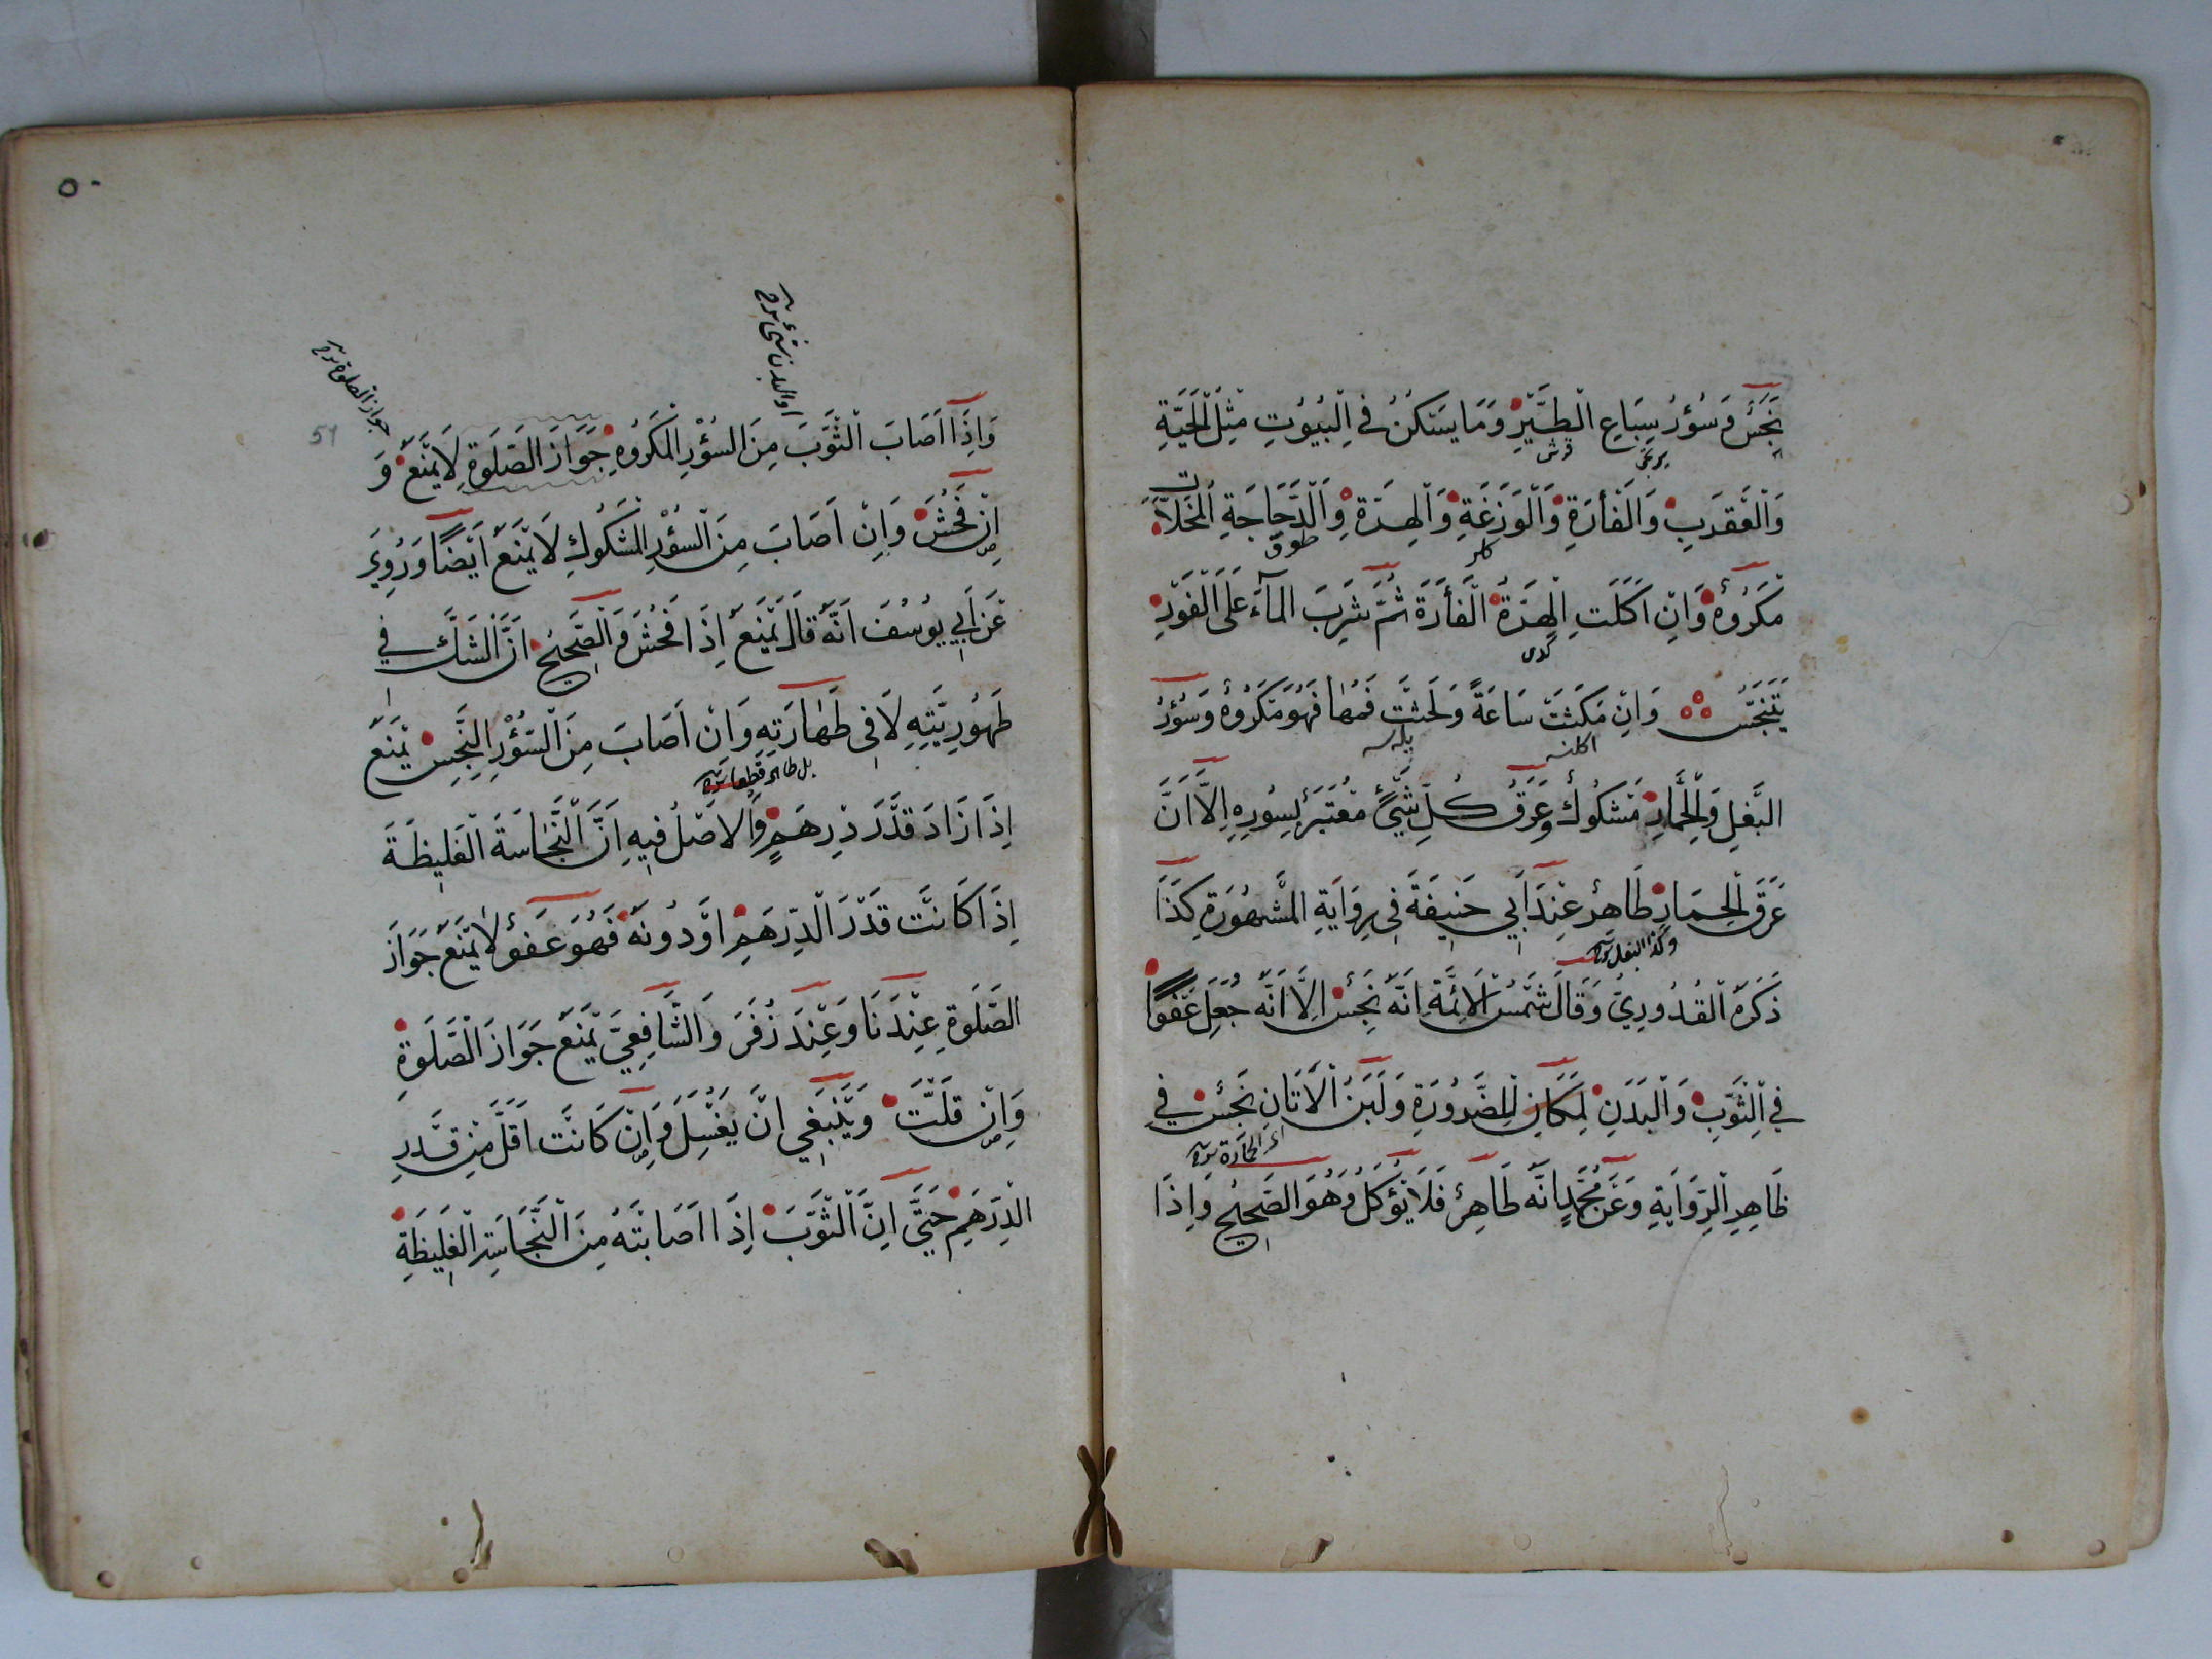 نَجَسٌ وَسُؤْرُ سِبَاعِ الطَّيْرِ وَمَا يَسْكُنُ فِي الْبُيُوتِ مِثْلُ الْحَيَّةِ
وَالْعَقْرَبِ وَالْفَأْرَةِ وَالْوَزَغَةِ وَالْهِرَّةِ وَالدَّجَاجَةِ الْمُخَلَّاةِ
مَكْرُوهٌ وَاِنْ اَكَلَتِ الْهِرَّةُ الْفَأْرَةَ ثُمَّ شَرِبَ الْمَآءَ عَلَى الْفَوْرِ
يَتَنَجَّسُ وَاِنْ مَكَثَتْ سَاعَةً وَلَحَسَتْ فَمُهَا فَهُوَ مَكْرُوهٌ وَسُؤْرُ
الْبَغْلِ وَالْحِمَارِ مَشْكُوكٌ وَعَرَقُ كُلِّ شَيْئٍ مُعْتَبَرٌ بِسُورِهِ اِلَّا اَنَّ
عَرَقَ الْحِمَارِ طَاهِرٌ عِنْدَ اَبِي حَنِيفَةَ فِي رِوَايَةِ الْمَشْهُورَةِ كَذَا
وكذا البغل شرح
ذَكَرَهُ الْقُدُورِيُّ وَقَالَ شَمْسُ الْاَئِمَّةِ اِنَّهُ نَجِسٌ اِلَّا اَنَّهُ جُعِلَ عَفْوًا
فِي الثَّوْبِ وَالْبَدَنِ لِمَكَانِ الضَّرُورَةِ وَلَبَنُ الْاَتَانِ نَجِسٌ فِي
اى الحمارة شرح
ظَاهِرِ الرِّوَايَةِ وَعَنْ مُحَمَّدٍ اَنَّهُ طَاهِرٌ فَلَا يُؤْكَلُ وَهُوَ الصَّحِيحُ وَاِذَا
٥٠
51
او البدن شئ شرح
جواز الصلوة شرح
وَاِذَا اَصَابَ الثَّوْبَ مِنَ السُّؤْرِ الْمَكْرُوهِ جَوَازَ الصَّلَوةِ لَا يَمْنَعُ وَ
اِنْ فَحُشَ وَاِنْ اَصَابَ مِنَ السُّؤْرِ الْمَشْكُوكِ لَا يَمْنَعُ اَيْضًا وَرُوِيَ
عَنْ اَبِي يُوسُفَ اَنَّهُ قَالَ يَمْنَعُ اِذَا فَحُشَ وَالصَّحِيحُ اَنَّ الشَّكَّ فِي
طَهُورِيَّتِهِ لَا فِي طَهَارَتِهِ وَاِنْ اَصَابَ مِنَ السُّؤْرِ النَّجِسِ يَمْنَعُ
بل طاهر قطعا شرح
اِذَا زَادَ قَدْرَ دِرْهَمٍ وَالْاَصْلُ فِيهِ اِنَّ النَّجَاسَةَ الْغَلِيظَةَ
اِذَا كَانَتْ قَدْرَ الدِّرْهَمِ اَوْ دُونَهُ فَهُوَ عَفْوٌ لَا يَمْنَعُ جَوَازَ
الصَّلَوةِ عِنْدَنَا وَعِنْدَ زُفَرَ وَالشَّافِعِيِّ يَمْنَعُ جَوَازَ الصَّلَوةِ
وَاِنْ قَلَّتْ وَيَنْبَغِي اَنْ يَغْسِلَ وَاِنْ كَانَتْ اَقَلَّ مِنْ قَدْرِ
الدِّرْهَمِ حَتَّى اِنَّ الثَّوْبَ اِذَا اَصَابَتْهُ مِنَ النَّجَاسَةِ الْغَلِيظَةِ